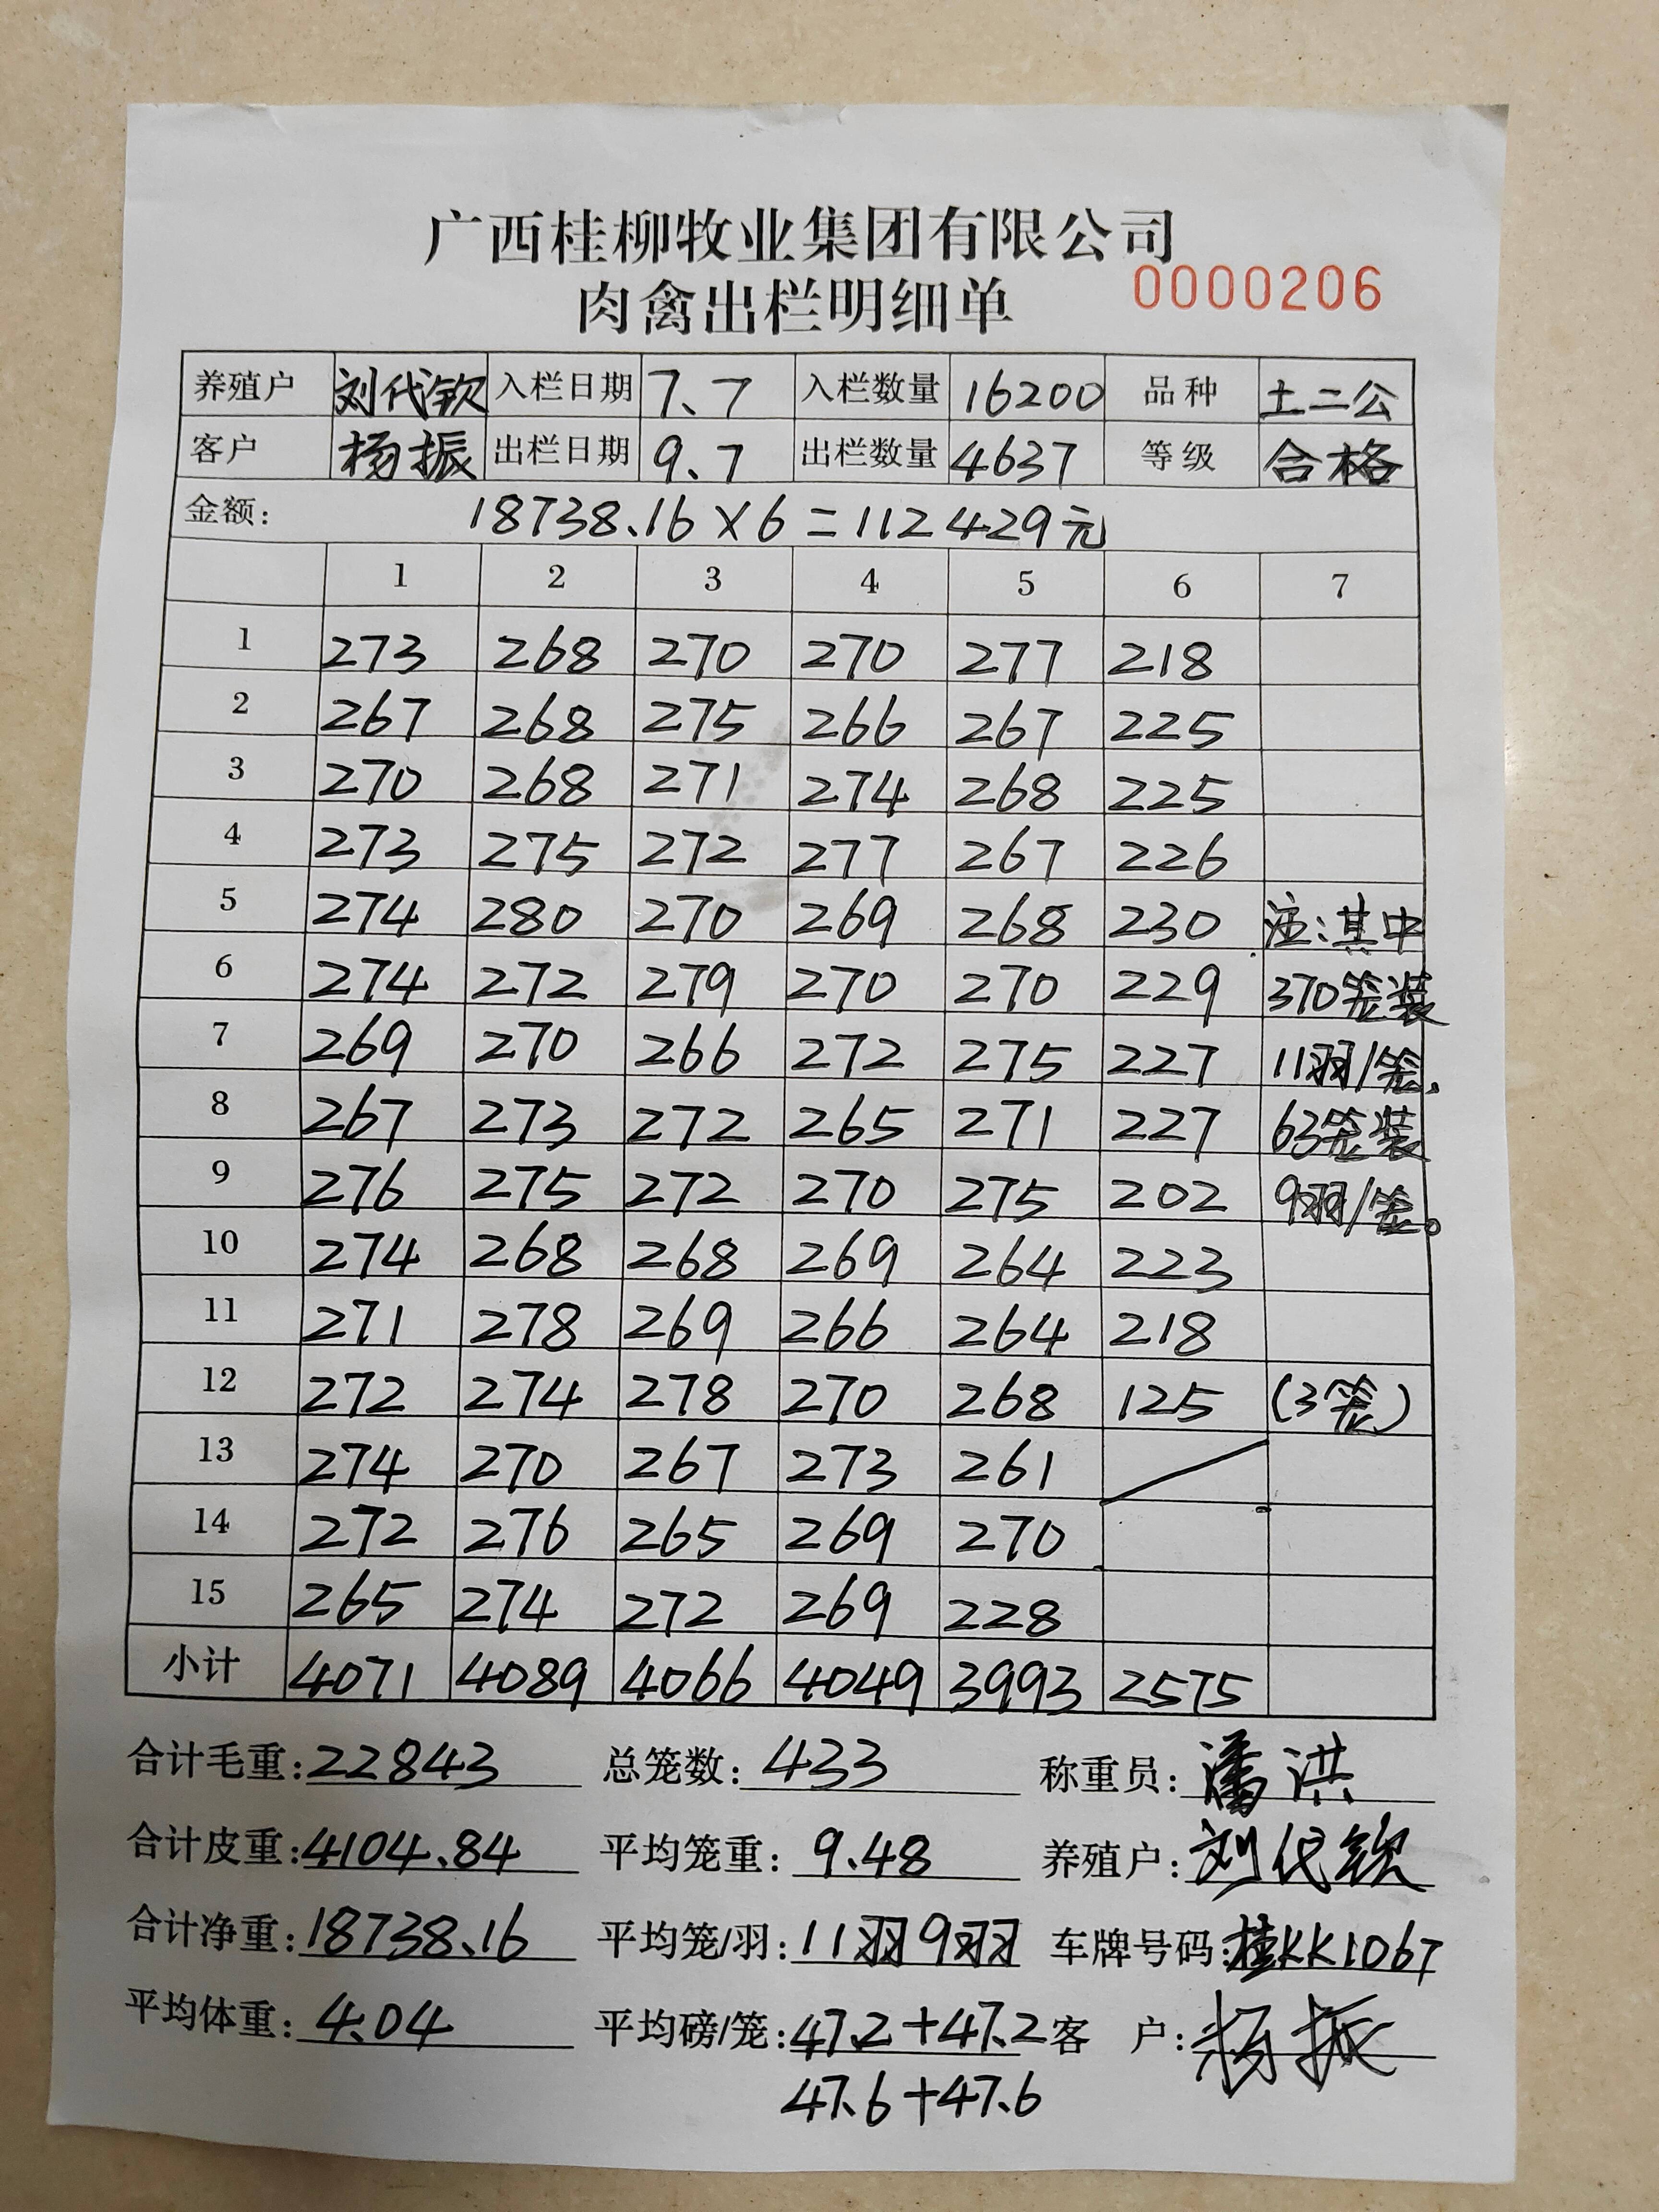 广西桂柳牧业集团有限公司
肉禽出栏明细单 0000206
养殖户 刘代钦 入栏日期 7、7 入栏数量 16200 品种 土二公
客户 杨振 出栏日期 9、7 出栏数量 4637 等级 合格
金额: 18738.16×6=112429元
1 2 3 4 5 6 7
1 273 268 270 270 277 218
2 267 268 275 266 267 225
3 270 268 271 274 268 225
4 273 275 272 277 267 226
5 274 280 270 269 268 230 注:其中
6 274 272 279 270 270 229 370笼装
7 269 270 266 272 275 227 11羽/笼,
8 267 273 272 265 271 227 63笼装
9 276 275 272 270 275 202 9羽/笼。
10 274 268 268 269 264 223
11 271 278 269 266 264 218
12 272 274 278 270 268 125 (3笼)
13 274 270 267 273 261
14 272 276 265 269 270
15 265 274 272 269 228
小计 4071 4089 4066 4049 3993 2575
合计毛重:22843 总笼数:433 称重员:潘洪
合计皮重:4104.84 平均笼重:9.48 养殖户:刘代钦
合计净重:18738.16 平均笼/羽:11羽9羽 车牌号码:桂KK1067
平均体重:4.04 平均磅/笼:47.2+47.2 客 户:杨振
47.6+47.6